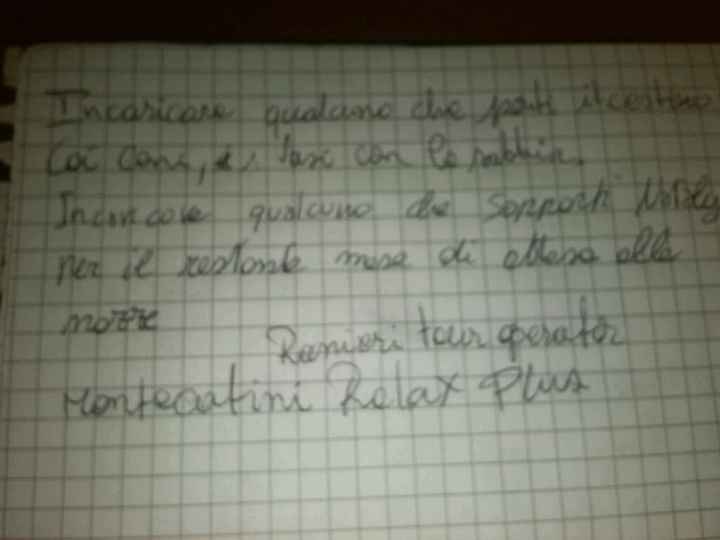 Incaricare qualcuno che porti il cestino
coi con le
Incaricare qualcuno che sopporti
per il restante mese di attesa alle
nozze
Ranieri tour operator
Montecatini Relax Plus